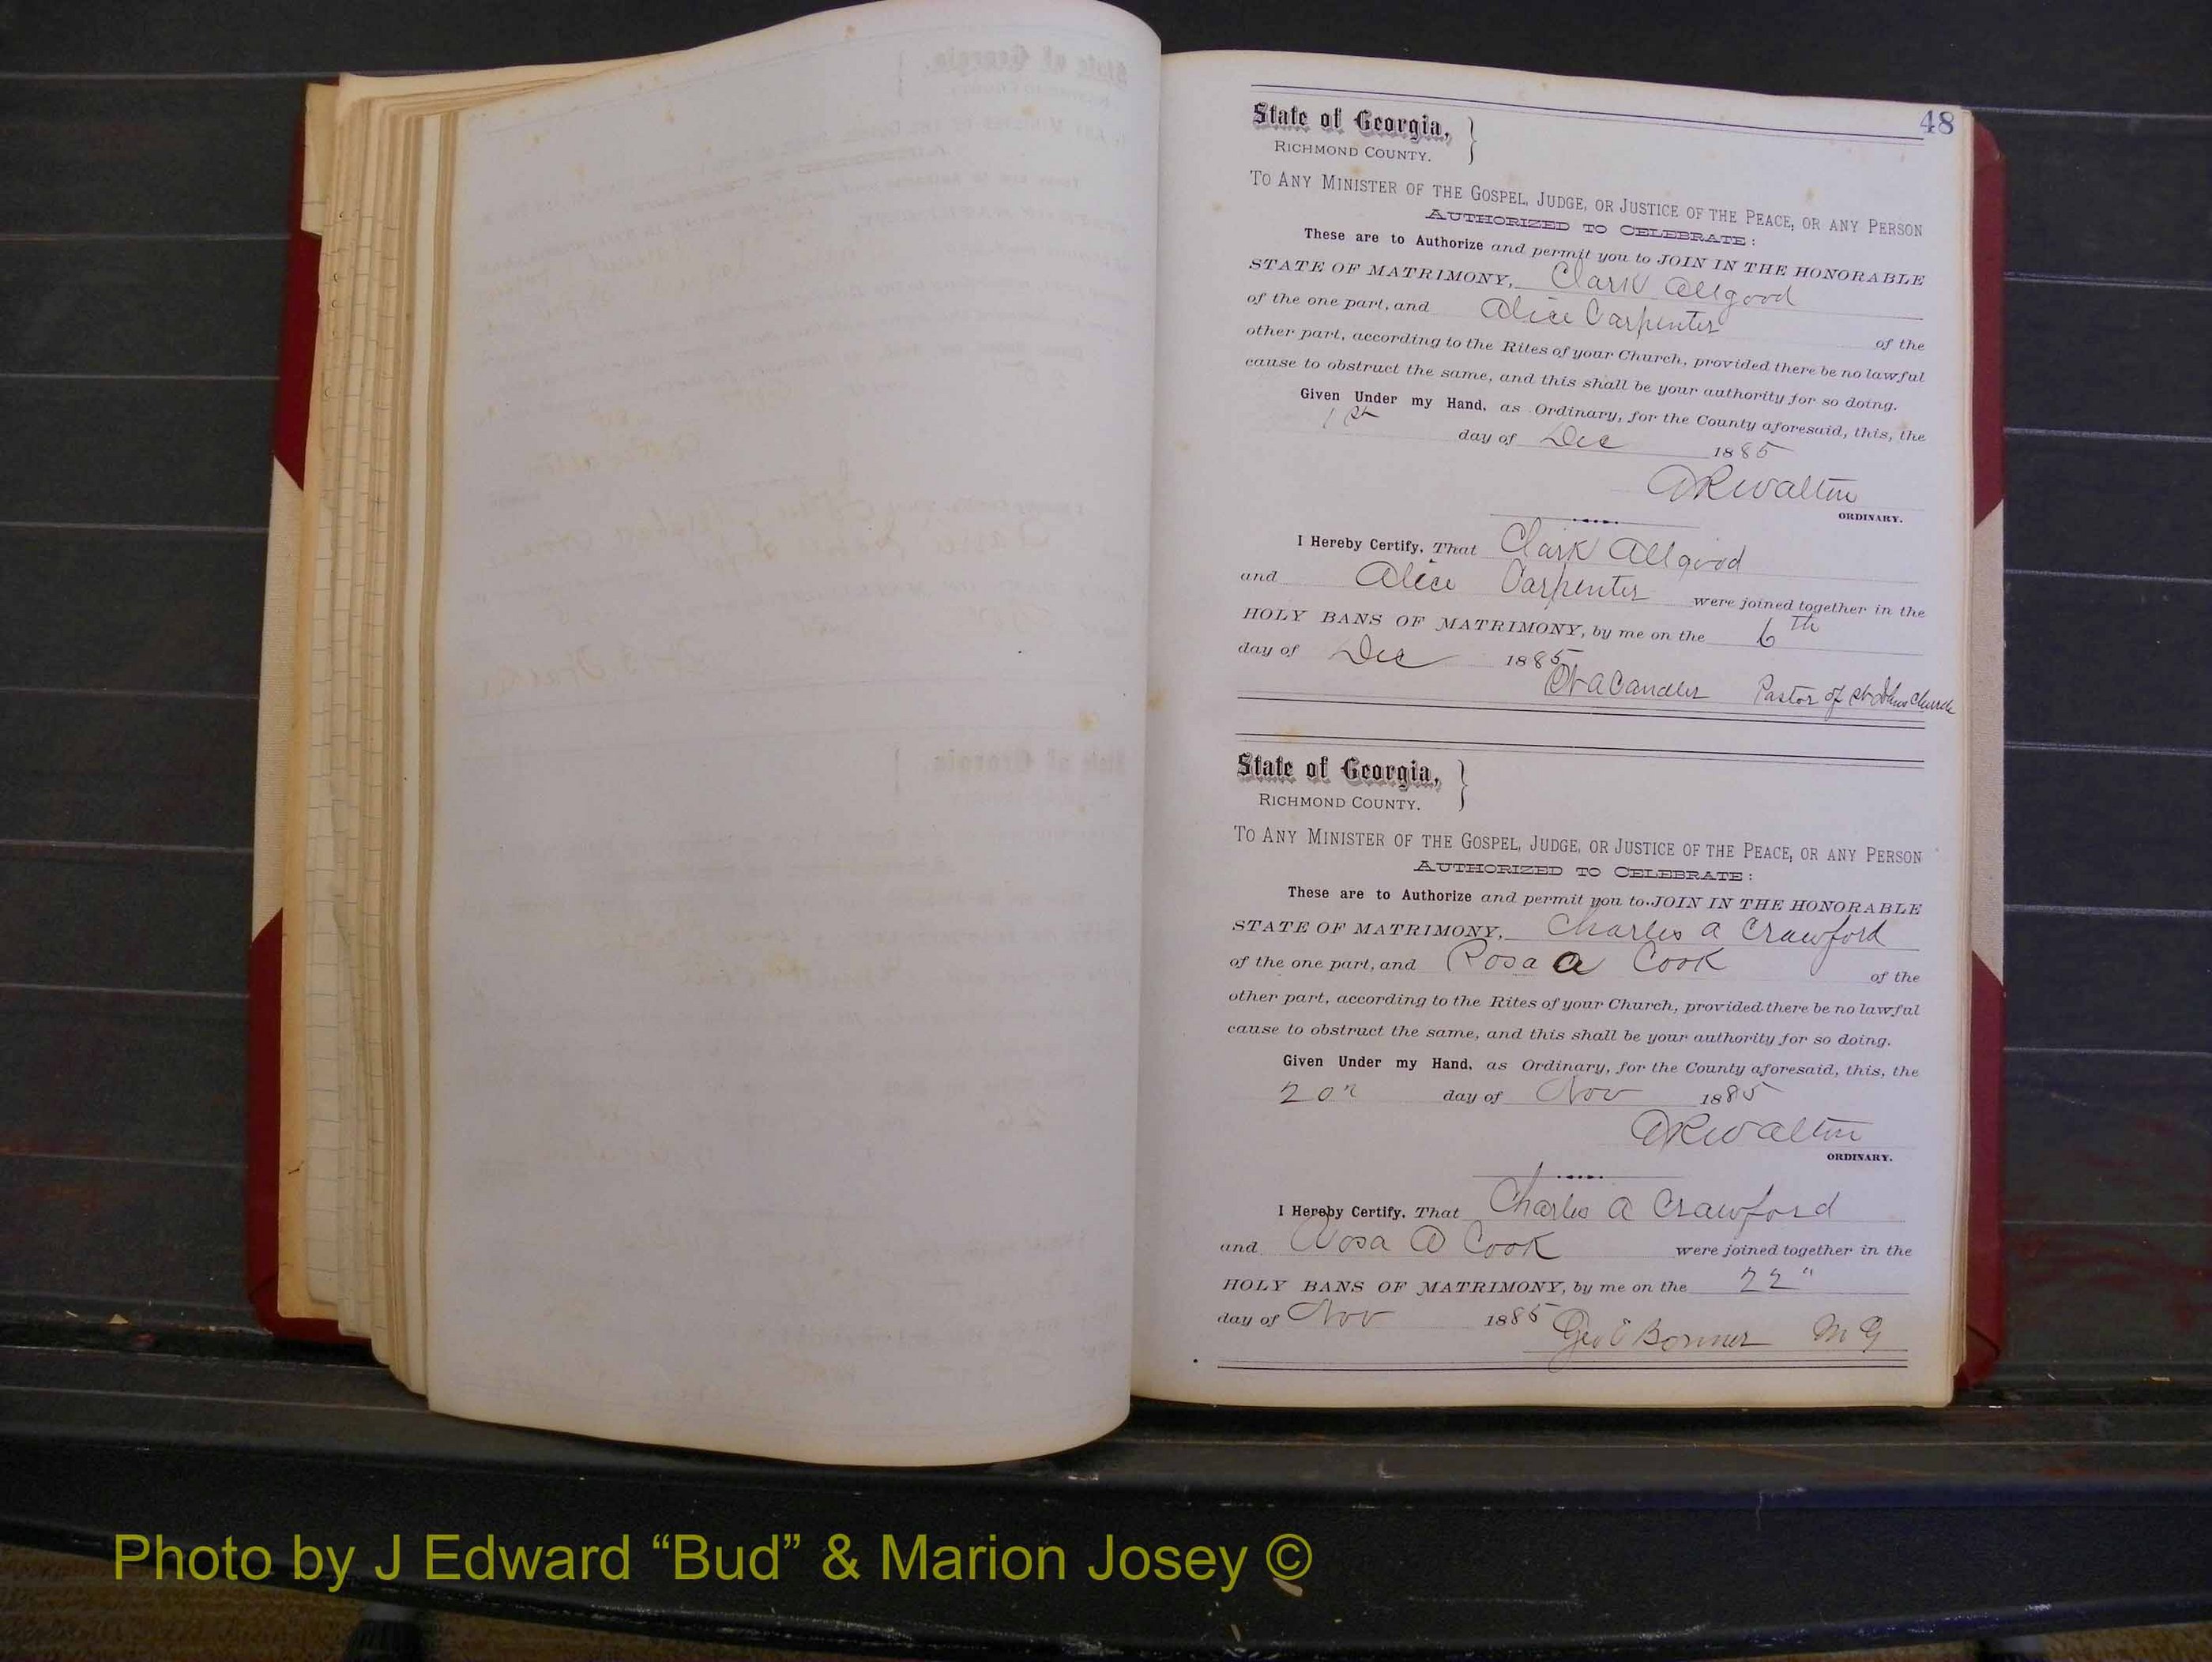 48
State of Georgia,
RICHMOND COUNTY.
TO ANY MINISTER OF THE GOSPEL, JUDGE, OR JUSTICE OF THE PEACE, OR ANY PERSON
AUTHORIZED TO CELEBRATE:
These are to Authorize and permit you to JOIN IN THE HONORABLE
STATE OF MATRIMONY, Clark Allgood
of the one part, and Alice Carpenter of the
other part, according to the Rites of your Church, provided there be no lawful
cause to obstruct the same, and this shall be your authority for so doing.
Given Under my Hand, as Ordinary, for the County aforesaid, this, the
1st day of Dec 1885
A R Walton
ORDINARY.
I Hereby Certify, That Clark Allgood
and Alice Carpenter were joined together in the
HOLY BANS OF MATRIMONY, by me on the 6th
day of Dec 1885
Candler Pastor of St Johns Church
State of Georgia,
RICHMOND COUNTY.
TO ANY MINISTER OF THE GOSPEL, JUDGE, OR JUSTICE OF THE PEACE, OR ANY PERSON
AUTHORIZED TO CELEBRATE:
These are to Authorize and permit you to JOIN IN THE HONORABLE
STATE OF MATRIMONY, Charles A Crawford
of the one part, and Rosa A Cook of the
other part, according to the Rites of your Church, provided there be no lawful
cause to obstruct the same, and this shall be your authority for so doing.
Given Under my Hand, as Ordinary, for the County aforesaid, this, the
20" day of Nov 1885
A R Walton
ORDINARY.
I Hereby Certify, That Charles A Crawford
and Rosa A Cook were joined together in the
HOLY BANS OF MATRIMONY, by me on the 22"
day of Nov 1885
Geo Bonner M G
Photo by J Edward “Bud” & Marion Josey ©